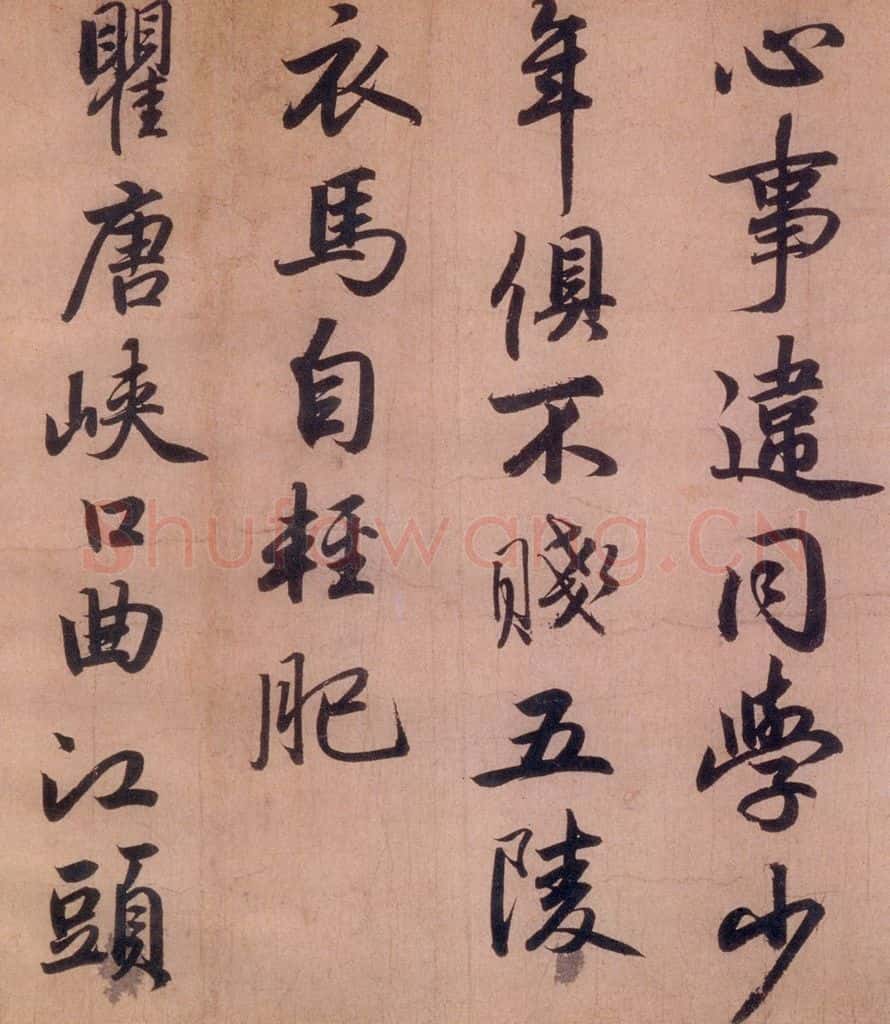 心事違同學少
年俱不賤五陵
衣馬自輕肥
瞿唐峽口曲江頭
Shufawang.CN